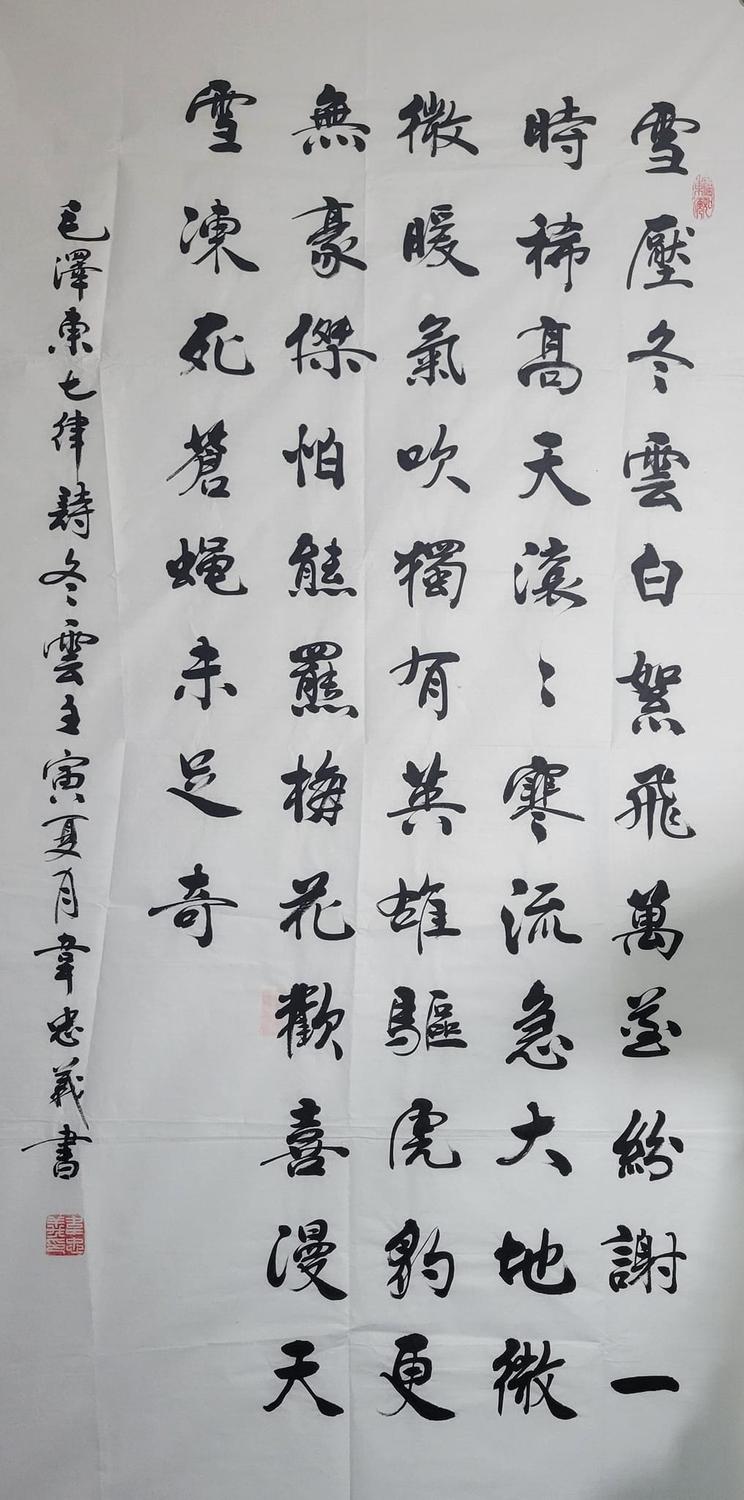 雪壓冬雲白絮飛萬花紛謝一
時稀高天滾〻寒流急大地微
微暖氣吹獨有英雄驅虎豹更
無豪傑怕熊羆梅花歡喜漫天
雪凍死蒼蝇未足奇
毛澤東七律詩冬雲壬寅夏月韋忠義書